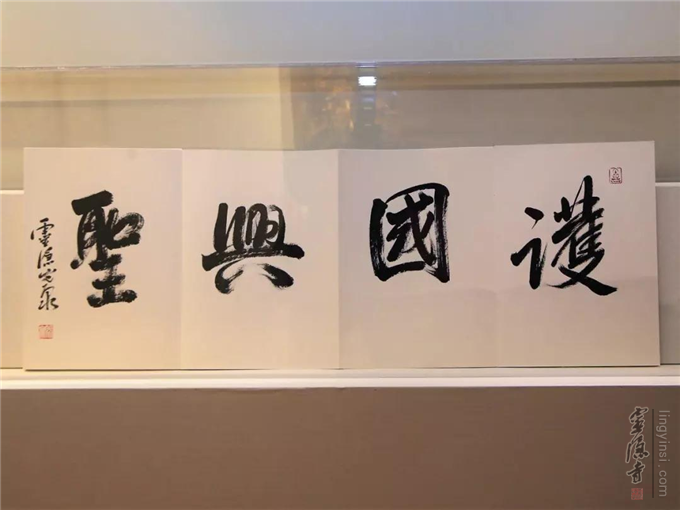 護國興聖
靈隱光泉
靈隱寺
lingyinsi.com